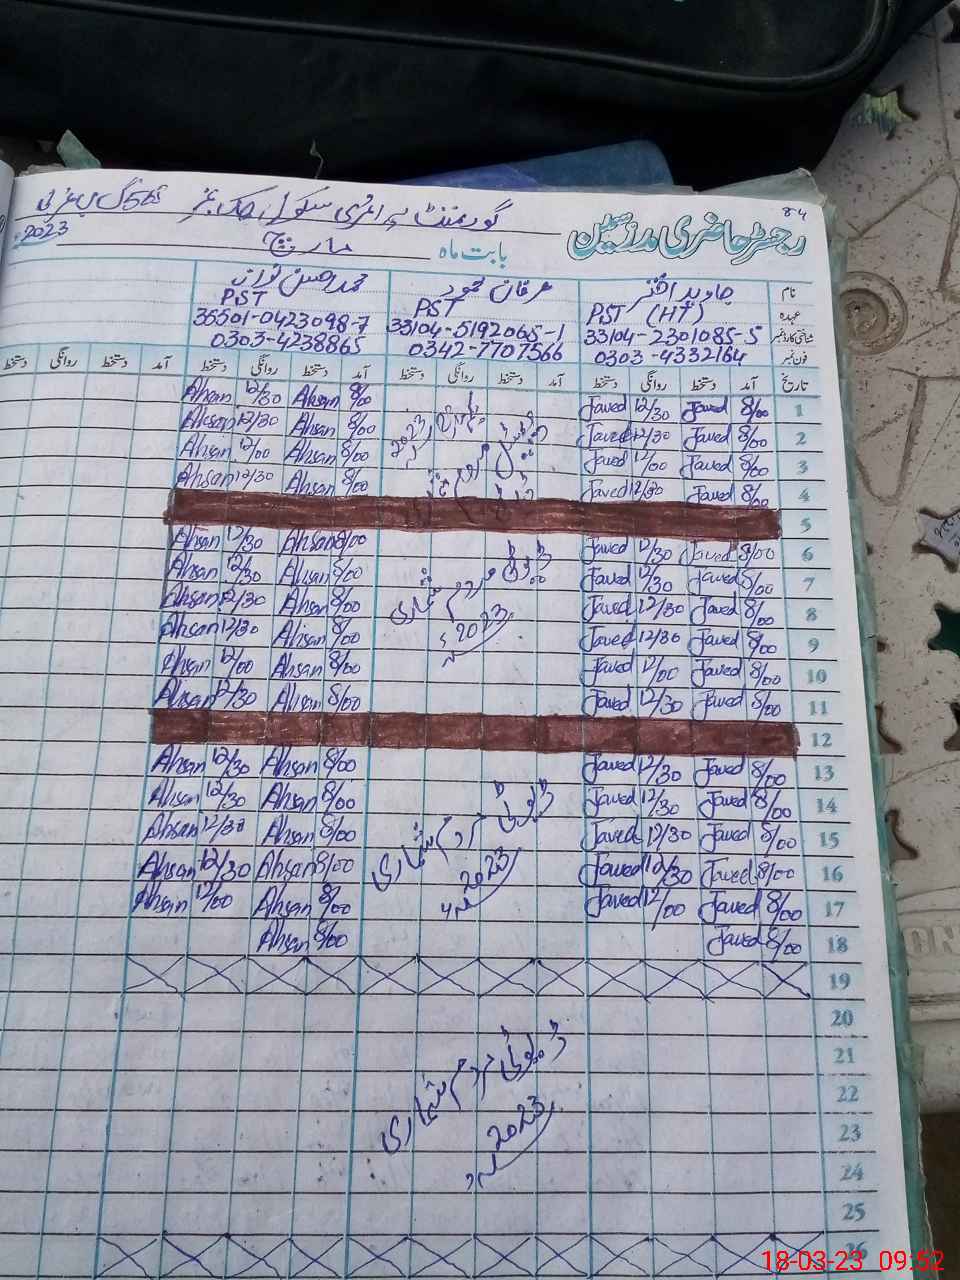 84
رجسٹر حاضری مدرسین
گورنمنٹ پرائمری سکول چک نمبر 565 گ ب غربی
بابت ماہ مارچ 2023
نام جاوید اختر عرفان محمود محمد احسن
عہدہ PST (HT) PST PST
شناختی کارڈ نمبر 33104-2301085-5 33104-5192065-1 35501-0423098-7
فون نمبر 0303-4332164 0342-7707566 0303-4238865
تاریخ آمد دستخط روانگی دستخط آمد دستخط روانگی دستخط آمد دستخط روانگی دستخط آمد دستخط روانگی دستخط
1 8/00 Javed 12/30 Javed 8/00 Ahsan 12/30 Ahsan
2 8/00 Javed 12/30 Javed 8/00 Ahsan 12/30 Ahsan
3 8/00 Javed 12/00 Javed 8/00 Ahsan 12/00 Ahsan
4 8/00 Javed 12/30 Javed 8/00 Ahsan 12/30 Ahsan
2023
5
6 8/00 Javed 12/30 Javed 8/00 Ahsan 12/30 Ahsan
7 8/00 Javed 12/30 Javed 8/00 Ahsan 12/30 Ahsan
8 8/00 Javed 12/30 Javed 8/00 Ahsan 12/30 Ahsan
9 8/00 Javed 12/30 Javed 8/00 Ahsan 12/30 Ahsan
10 8/00 Javed 12/00 Javed 8/00 Ahsan 12/00 Ahsan
11 8/00 Javed 12/30 Javed 8/00 Ahsan 12/30 Ahsan
ڈیوٹی مردم شماری
2023ء
12
13 8/00 Javed 12/30 Javed 8/00 Ahsan 12/30 Ahsan
14 8/00 Javed 12/30 Javed 8/00 Ahsan 12/30 Ahsan
15 8/00 Javed 12/30 Javed 8/00 Ahsan 12/30 Ahsan
16 8/00 Javed 12/30 Javed 8/00 Ahsan 12/30 Ahsan
17 8/00 Javed 12/00 Javed 8/00 Ahsan 12/00 Ahsan
18 8/00 Javed 8/00 Ahsan
ڈیوٹی مردم شماری
2023ء
19
20
21
22
23
24
25
ڈیوٹی مردم شماری
2023ء
26
18-03-23 09:52